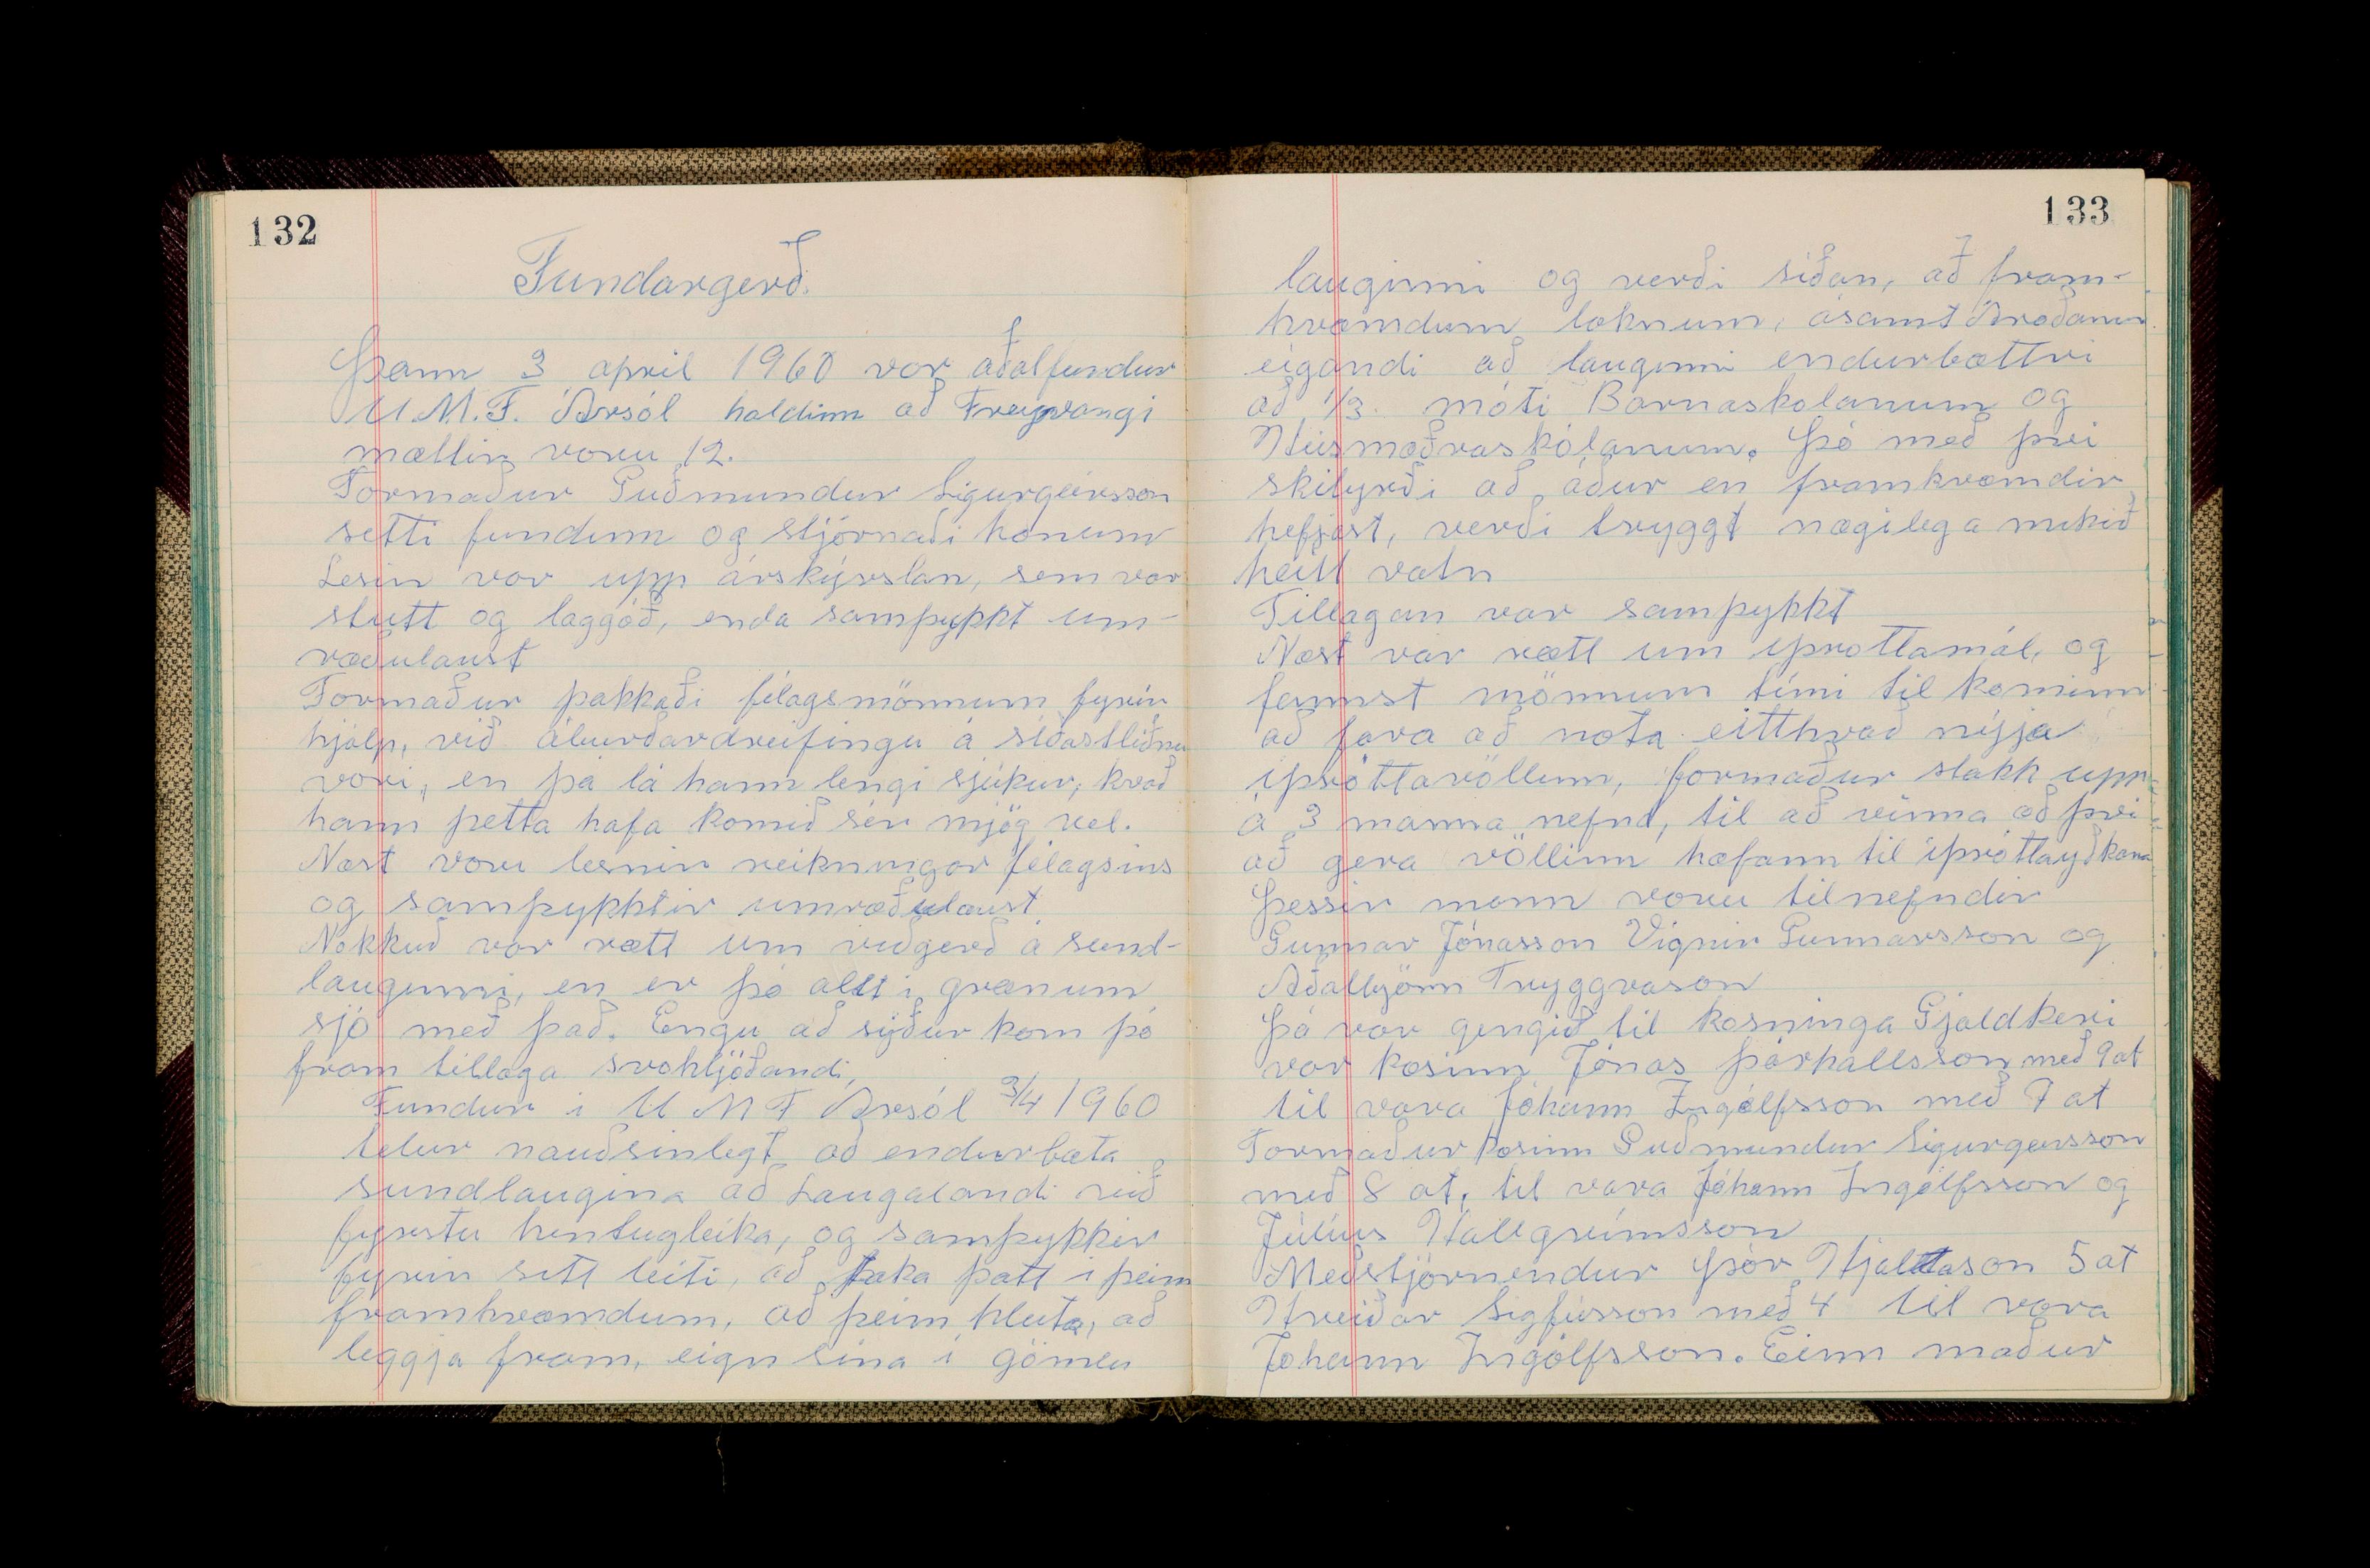 132
Fundargerð.
Þann 3 apríl 1960 var aðalfundur
U.M.F. Ársól haldinn að Freyvangi
mættir voru 12.
Formaður Guðmundur Sigurgeirsson
setti fundinn og stjórnaði honum
Lesin var upp ársskýrslan, sem var
stutt og laggóð, enda samþykkt um-
ræðulaust
Formaður þakkaði félagsmönnum fyrir
hjálp, við áburðardreifingu á síðastliðnu
vori, en þá lá hann lengi sjúkur, kvað
hann þetta hafa komið sér mjög vel.
Næst voru lesnir reikningar félagsins
og samþykktir umræðulaust
Nokkuð var rætt um viðgerð á sund-
lauginni, en er þó allt í grænum
sjó með það. Engu að síður kom þó
fram tillaga svohljóðandi,
Fundur í U M F Ársól 3/4 1960
telur nauðsinlegt að endurbæta
sundlaugina að Laugalandi við
fyrstu hentugleika, og samþykkir
fyrir sitt leiti, að taka þátt í þeim
framkvæmdum, að þeim hluta, að
leggja fram, eign sína í gömlu
133
lauginni og verði síðan, að fram-
kvæmdum loknum, ásamt Āroðanum
eigandi að lauginni endurbættri
að 1/3. móti Barnaskólanum og
Húsmæðraskólanum. Þó með því
skilyrði að áður en framkvæmdir
hefjast, verði tryggt nægilega mikið
heitt vatn
Tillagan var samþykkt
Næst var rætt um íþróttamál, og
fannst mönnum tími til kominn
að fara að nota eitthvað nýja
íþróttavöllinn, formaður stakk upp
á 3 manna nefnd, til að vinna að því
að gera völlinn hæfann til íþróttaiðkana
Þessir menn voru tilnefndir
Gunnar Jónasson Vignir Gunnarsson og
Aðalbjörn Tryggvason
Þá var gengið til kosninga Gjaldkeri
var kosinn Jónas Þórhallsson með 9 at
til vara Jóhann Ingólfsson með 7 at
Formaður kosinn Guðmundur Sigurgeirsson
með 8 at, til vara Jóhann Ingólfsson og
Júlíus Hallgrímsson
Meðstjórnendur Þór Hjaltason 5 at
Hreiðar Sigfússon með 4 til vara
Jóhann Ingólfsson. Einn maður